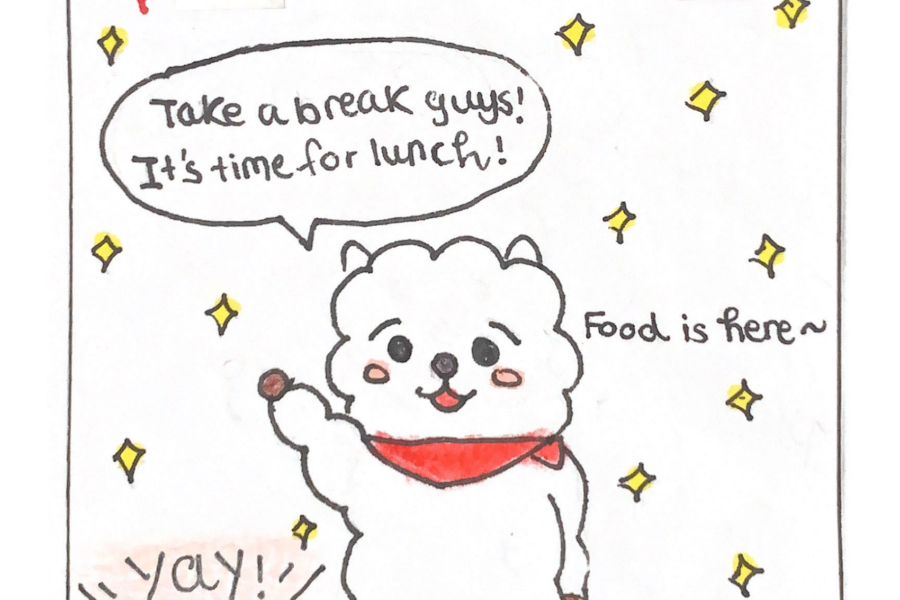 Take a break guys!
It's time for lunch!
Food is here~
Yay!